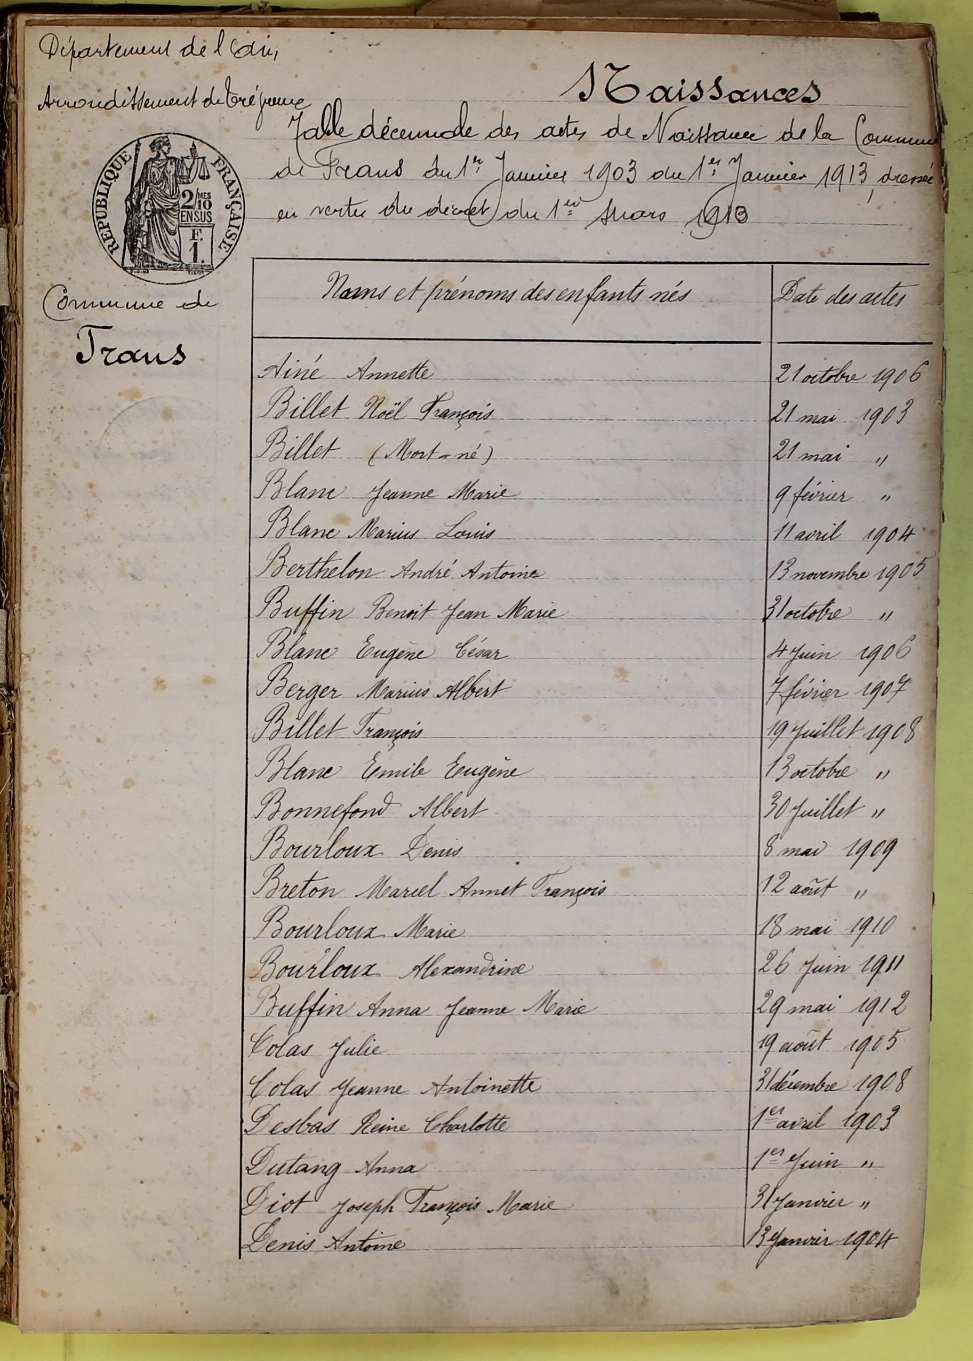 Département de l'Ain,
Arrondissement de Trévoux
Naissances
Table décennale des actes de Naissance de la Commune
de Trans du 1er Janvier 1903 au 1er Janvier 1913, dressée
en vertu du décret du 1er mars 1913
RÉPUBLIQUE FRANÇAISE
2/10 MES
EN SUS
F.
1.
Commune de
Trans
Noms et prénoms des enfants nés
Date des actes
Ainé Annette 21 octobre 1906
Billet Noël François 21 mai 1903
Billet (Mort-né) 21 mai "
Blanc Jeanne Marie 9 février "
Blanc Marius Louis 11 avril 1904
Berthelon André Antoine 13 novembre 1905
Buffin Benoit Jean Marie 31 octobre "
Blanc Eugène César 4 Juin 1906
Berger Marius Albert 7 février 1907
Billet François 19 Juillet 1908
Blanc Emile Eugène 13 octobre "
Bonnefond Albert 30 Juillet "
Bourloux Denis 8 mai 1909
Breton Marcel Annet François 12 août "
Bourloux Marie 18 mai 1910
Bourloux Alexandrine 26 Juin 1911
Buffin Anna Jeanne Marie 29 mai 1912
Colas Julie 19 août 1905
Colas Jeanne Antoinette 31 décembre 1908
Desbas Reine Charlotte 1er avril 1903
Dutang Anna 1er Juin "
Diot Joseph François Marie 31 Janvier "
Denis Antoine 13 Janvier 1904